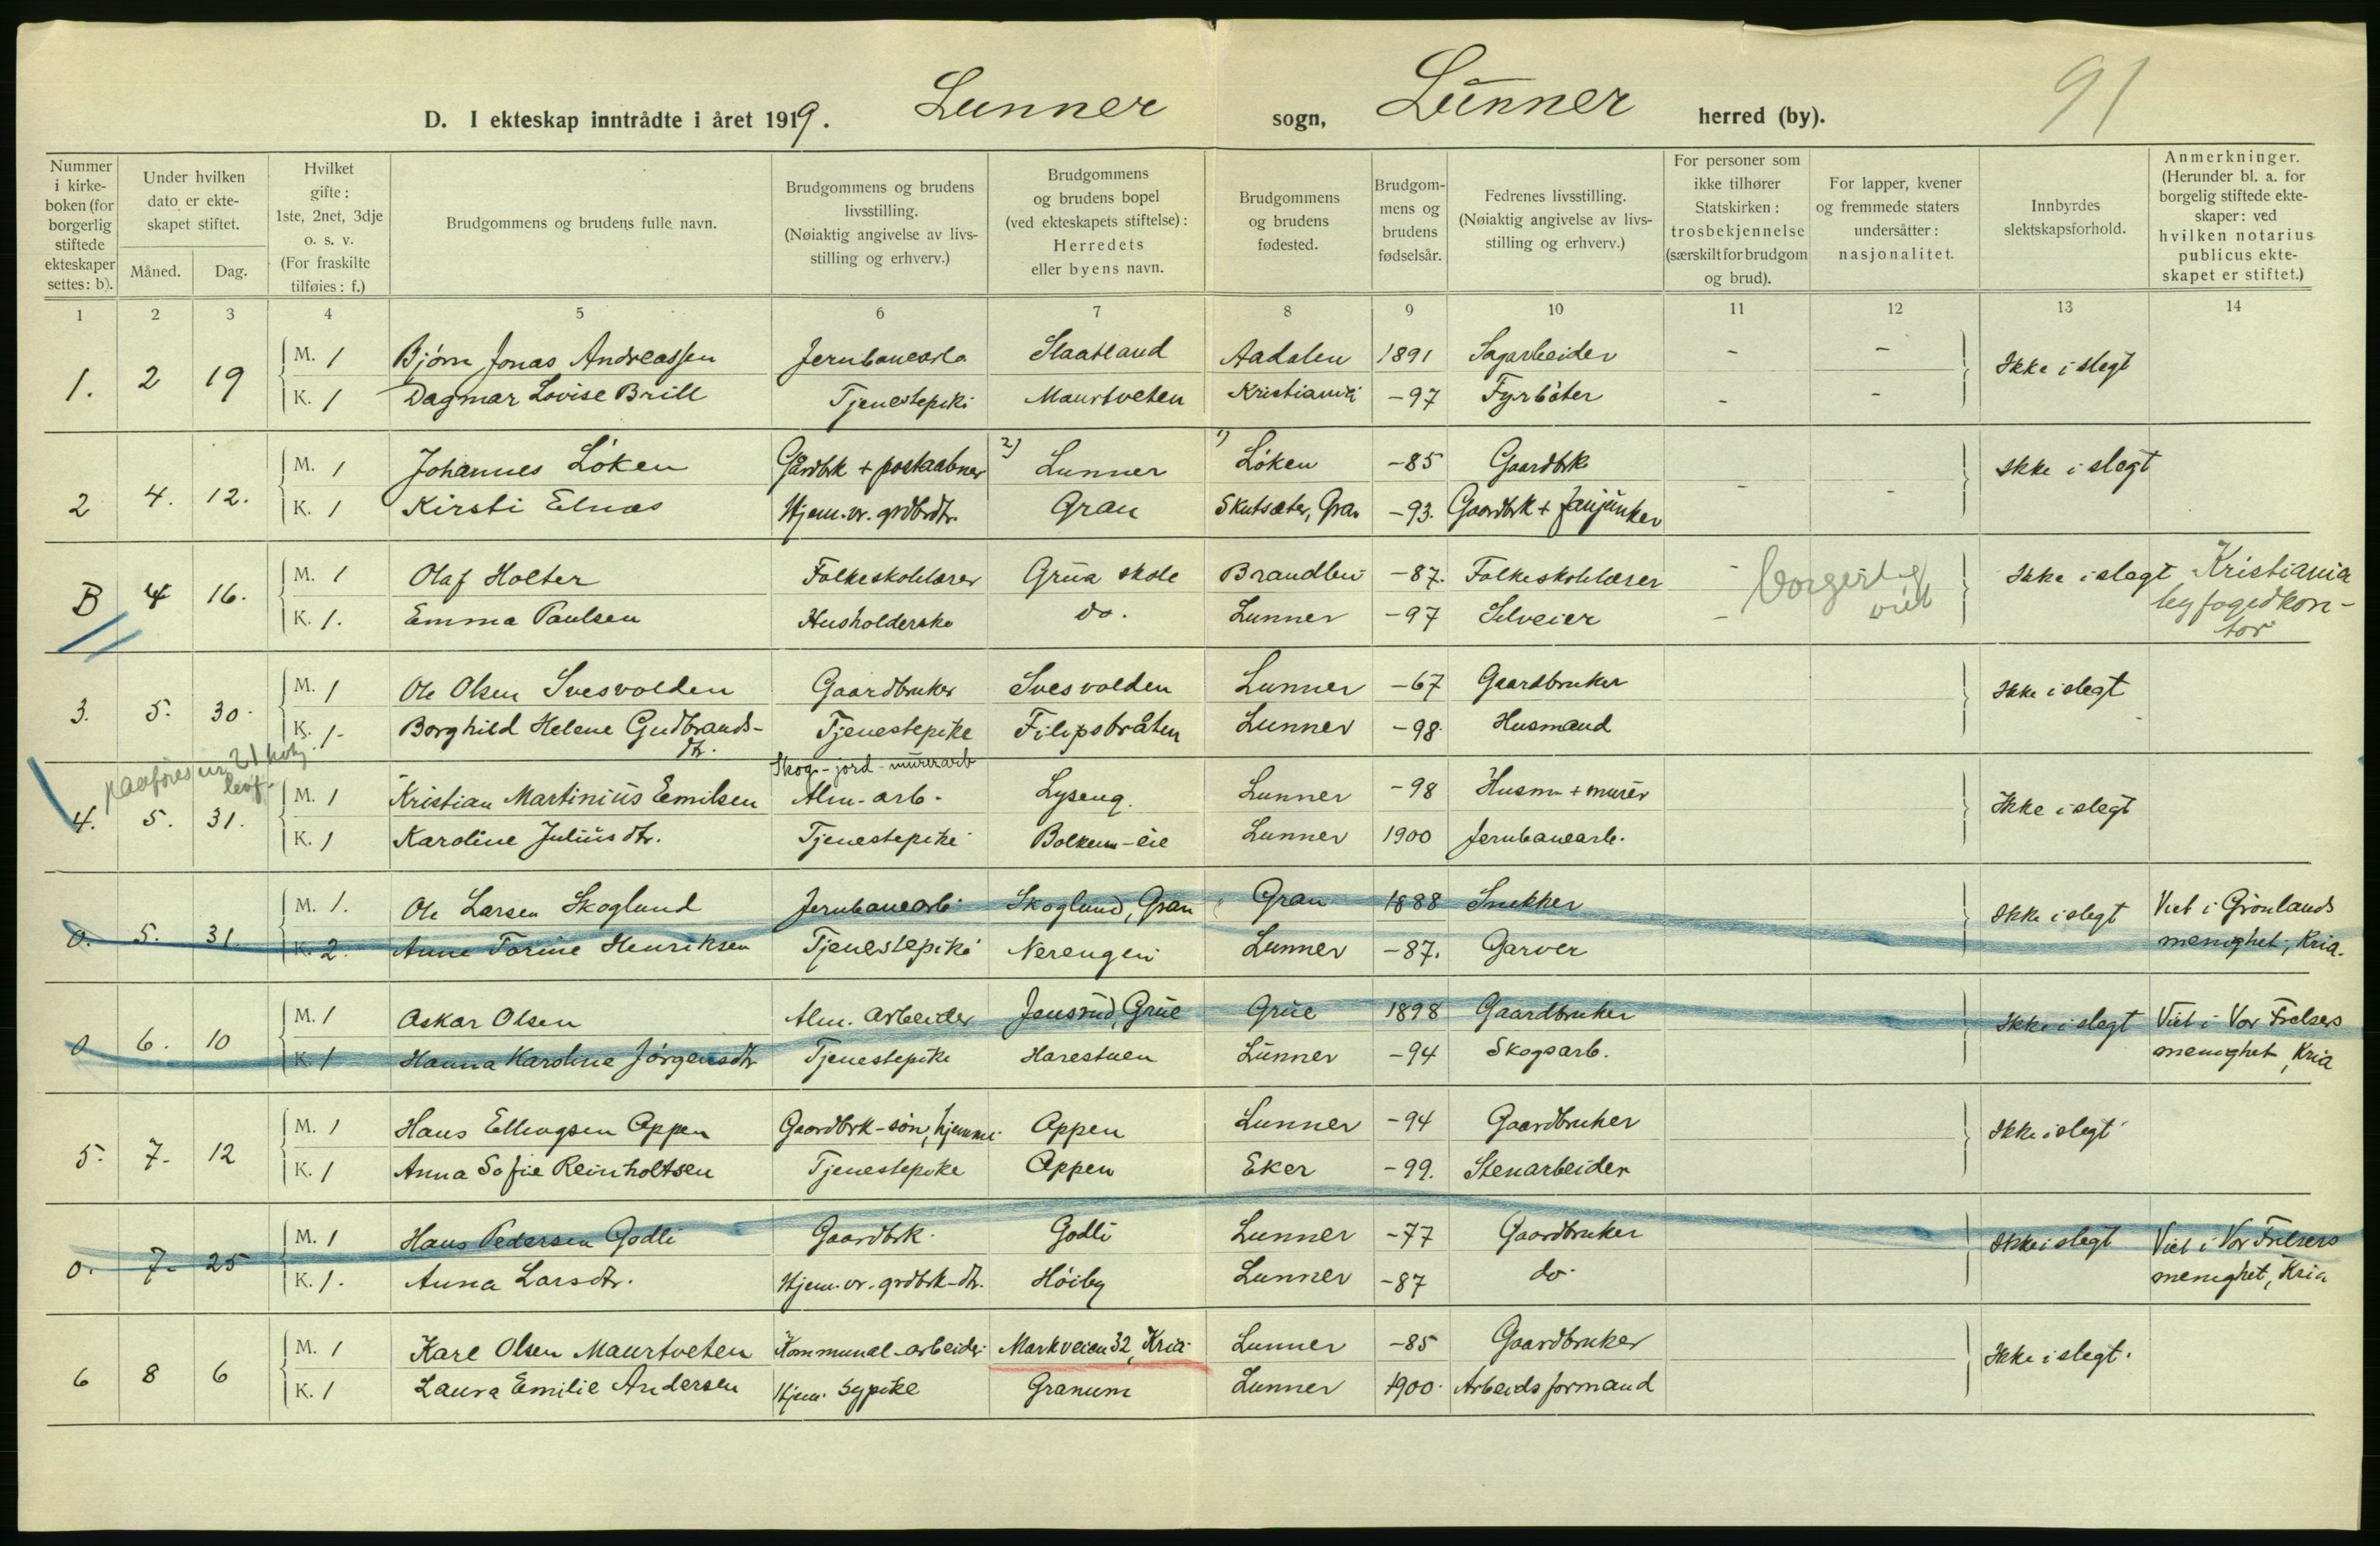 91
D. I ekteskap inntrådte i året 1919. Lunner sogn, Lunner herred (by).
Nummer i kirkeboken (for borgerlig stiftede ekteskaper settes: b).
Under hvilken dato er ekteskapet stiftet.
Måned. Dag.
Hvilket gifte: 1ste, 2net, 3dje o. s. v. (For fraskilte tilføies: f.)
Brudgommens og brudens fulle navn.
Brudgommens og brudens livsstilling. (Nøiaktig angivelse av livsstilling og erhverv.)
Brudgommens og brudens bopel (ved ekteskapets stiftelse): Herredets eller byens navn.
Brudgommens og brudens fødested.
Brudgommens og brudens fødselsår.
Fedrenes livsstilling. (Nøiaktig angivelse av livsstilling og erhverv.)
For personer som ikke tilhører Statskirken: trosbekjennelse (særskilt for brudgom og brud).
For lapper, kvener og fremmede staters undersåtter: nasjonalitet.
Innbyrdes slektskapsforhold.
Anmerkninger. (Herunder bl. a. for borgelig stiftede ekteskaper: ved hvilken notarius publicus ekteskapet er stiftet.)
1 2 3 4 5 6 7 8 9 10 11 12 13 14
1. 2 19 M. 1 Bjørn Jonas Andreassen Jernbanearb Aadalen 1891 Sagarbeider - - Ikke i slegt
K. 1 Dagmar Lovise Brill Tjenestepike Maurtveten Kristiania -97 Fyrbøter - -
2 4. 12. M. 1 Johannes Løken Gårdbrk + postaabner 2) Lunner 1) Løken -85 Gaardbrk Ikke i slegt
K. 1 Kirsti Elnæs Hjem. vr. grdbrdtr. Gran Skutsæter, Gran -93. Gaardbrk + fanjunker - -
B 4 16. M. 1 Olaf Holter Folkeskolelærer Grua skole Brandbu -87. Folkeskolelærer - borgerlig viet Ikke i slegt Kristiania byfogedkontor
K. 1. Emma Paulsen Husholderske do. Lunner -97 Selveier -
3. 5. 30. M. 1 Ole Olsen Svesvolden Gaardbruker Svesvolden Lunner -67 Gaardbruker Ikke i slegt
K. 1. Borghild Helene Gudbrandsdtr. Tjenestepike Filipsbråten Lunner -98 Husmand
paaføres nr. 21
4. 5. 31. M. 1 Kristian Martinius Emilsen Skog-jord-murerarb Alm. arb. Lyseng. Lunner -98 Husm + murer Ikke i slegt
K. 1 Karoline Juliusdtr. Tjenestepike Bolken-eie Lunner 1900 Jernbanearb.
0. 5. 31. M. 1. Ole Larsen Skoglund Jernbanearb. Skoglund, Gran Gran 1888 Snekker Ikke i slegt Viet i Grønlands
K. 2. Anne Torine Henriksen Tjenestepike Nerengen Lunner -87. Garver menighet, Kria.
0 6. 10 M. 1 Oskar Olsen Alm. arbeider Jensrud, Grue Grue 1898 Gaardbruker Ikke i slegt Viet i Vor Frelsers
K. 1 Hanna Karoline Jørgensdtr Tjenestepike Harestuen Lunner -94 Skogsarb. menighet, Kria
5. 7. 12 M. 1 Hans Ellingsen Oppen Gaardbrk-søn, hjemme Oppen Lunner -94 Gaardbruker Ikke i slegt
K. 1 Anna Sofie Reinholtsen Tjenestepike Oppen Eker -99. Stenarbeider
0. 7. 25 M. 1 Hans Pedersen Godli Gaardbrk. Godli Lunner -77 Gaardbruker Ikke i slegt Viet i Vor Frelsers
K. 1. Anna Larsdtr. Hjem. vr. grdbrk-dtr. Høiby Lunner -87 do. menighet, Kria
6 8 6 M. 1 Karl Olsen Maurtveten Kommunal-arbeider Markveien 32, Kria Lunner -85 Gaardbruker Ikke i slegt.
K. 1 Laura Emilie Andersen Hjem. sypike Granum Lunner 1900. Arbeidsformand